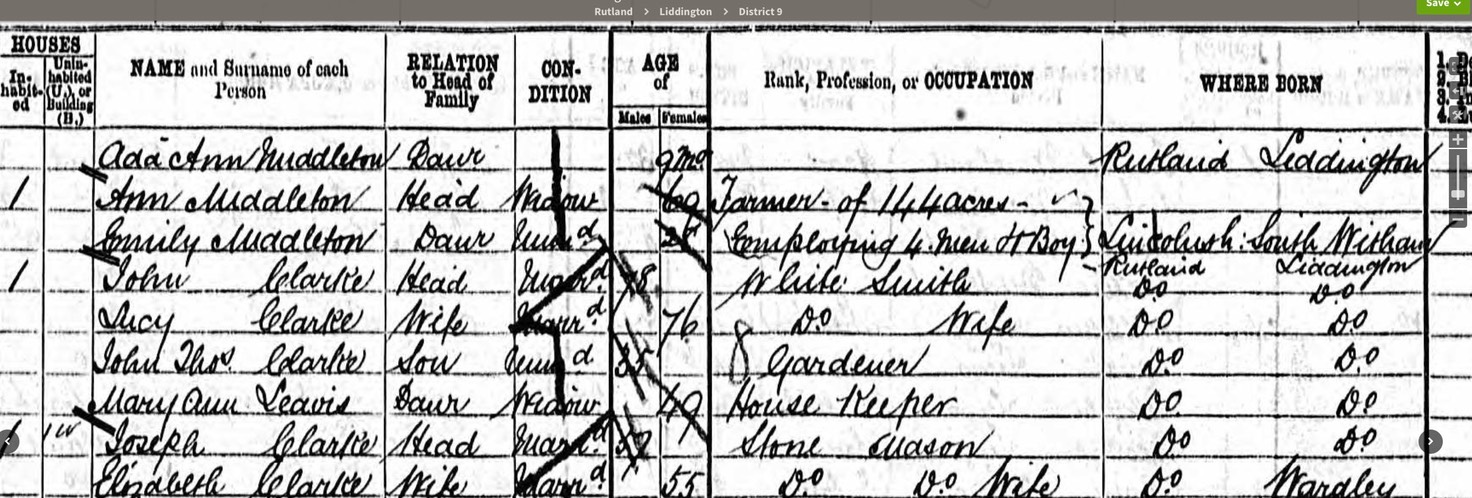 Rutland > Liddington > District 9
Save
HOUSES
In-habit-ed
Unin-habited (U.), or Building (B.)
NAME and Surname of each Person
RELATION to Head of Family
CON-DITION
AGE of
Males
Females
Rank, Profession, or OCCUPATION
WHERE BORN
Ada Ann Middleton Daur 9 mo Rutland Liddington
1 Ann Middleton Head Widow 69 Farmer - of 144 acres -
Emily Middleton Daur Unm^d Employing 4 Men & Boy Lincolnsh: South Witham
Rutland Liddington
1 John Clarke Head Marr^d 78 White Smith Do Do
Lucy Clarke Wife Marr^d 76 Do Wife Do Do
John Thos. Clarke Son Unm^d 35 Gardener Do Do
Mary Ann Leavis Daur Widow 49 House Keeper Do Do
1 Joseph Clarke Head Marr^d Stone Mason Do Do
Elizabeth Clarke Wife Marr^d 55 Do Do Wife Do Wardley